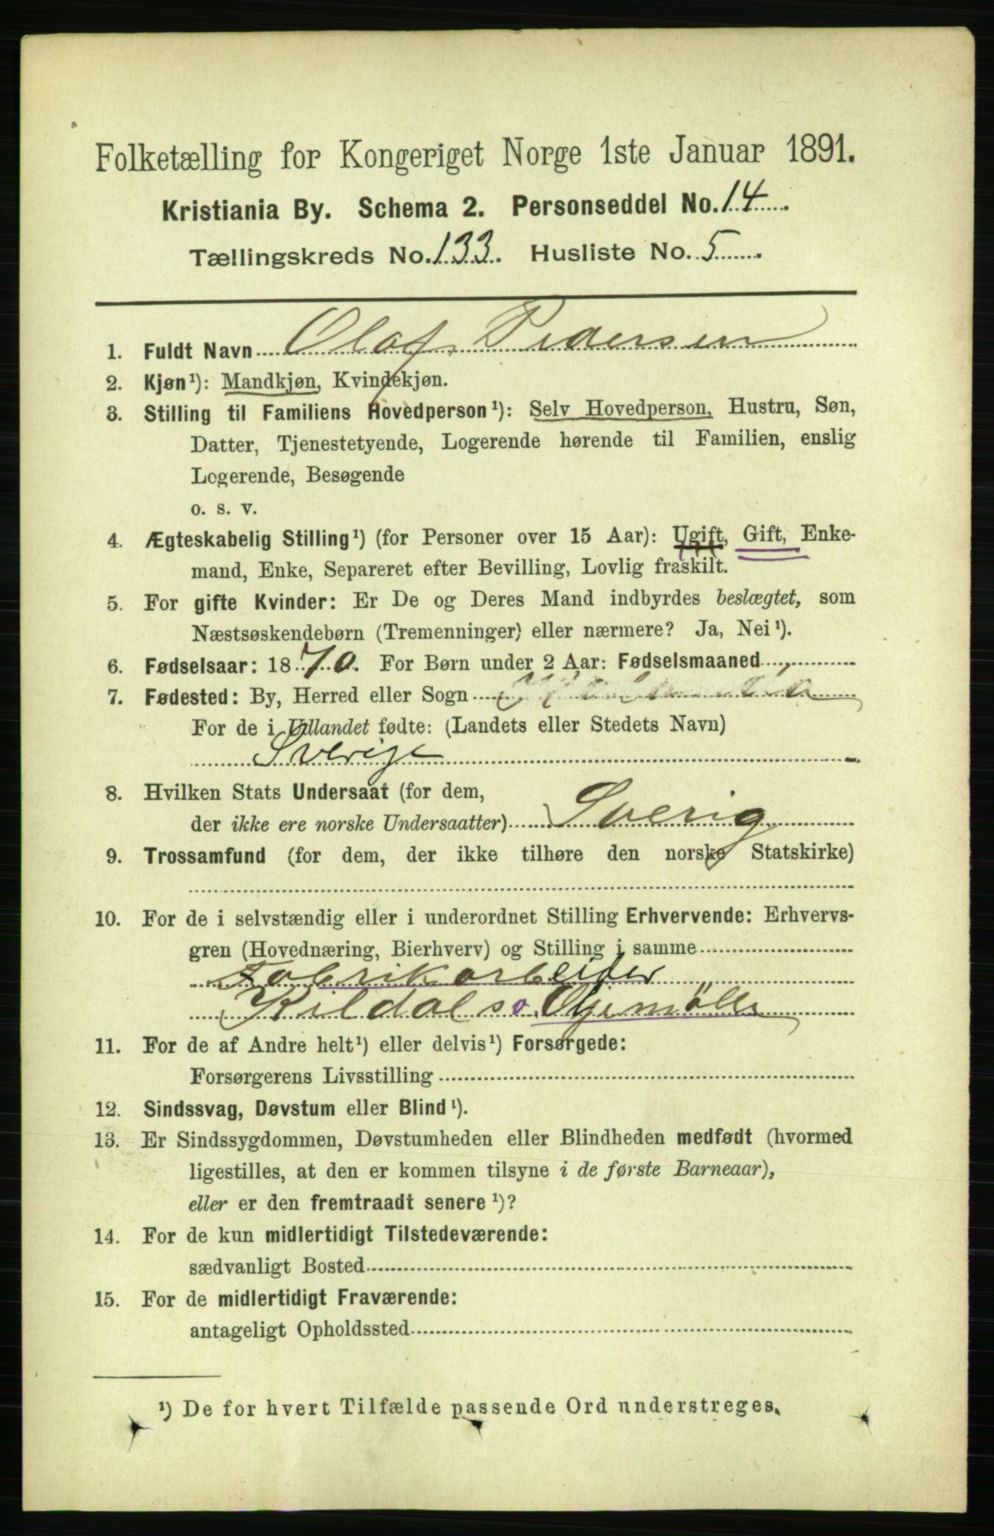 Folketælling for Kongeriget Norge 1ste Januar 1891.
Kristiania By. Schema 2. Personseddel No. 14
Tællingskreds No. 133. Husliste No. 5
1. Fuldt Navn Olaf Pedersen
2. Kjøn¹): Mandkjøn, Kvindekjøn.
3. Stilling til Familiens Hovedperson¹): Selv Hovedperson, Hustru, Søn,
Datter, Tjenestetyende, Logerende hørende til Familien, enslig
Logerende, Besøgende
o. s. v.
4. Ægteskabelig Stilling¹) (for Personer over 15 Aar): Ugift, Gift, Enke-
mand, Enke, Separeret efter Bevilling, Lovlig fraskilt.
5. For gifte Kvinder: Er De og Deres Mand indbyrdes beslægtet, som
Næstsøskendebørn (Tremenninger) eller nærmere? Ja, Nei¹).
6. Fødselsaar: 1870. For Børn under 2 Aar: Fødselsmaaned
7. Fødested: By, Herred eller Sogn
For de i Udlandet fødte: (Landets eller Stedets Navn)
Sverige
8. Hvilken Stats Undersaat (for dem,
der ikke ere norske Undersaatter) Sverig
9. Trossamfund (for dem, der ikke tilhøre den norske Statskirke)
10. For de i selvstændig eller i underordnet Stilling Erhvervende: Erhvervs-
gren (Hovednæring, Bierhverv) og Stilling i samme
Fabrikarbeider
Kildals Oljemølle
11. For de af Andre helt¹) eller delvis¹) Forsørgede:
Forsørgerens Livsstilling
12. Sindssvag, Døvstum eller Blind¹).
13. Er Sindssygdommen, Døvstumheden eller Blindheden medfødt (hvormed
ligestilles, at den er kommen tilsyne i de første Barneaar),
eller er den fremtraadt senere¹)?
14. For de kun midlertidigt Tilstedeværende:
sædvanligt Bosted
15. For de midlertidigt Fraværende:
antageligt Opholdssted
¹) De for hvert Tilfælde passende Ord understreges.